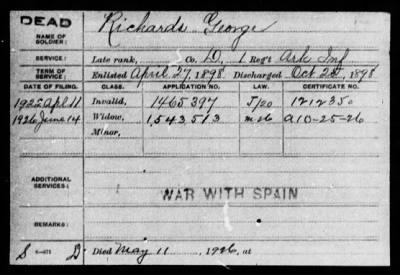 DEAD
NAME OF SOLDIER: Richards George
SERVICE: Late rank, Co. D, 1 Reg't Ark Inf
TERM OF SERVICE: Enlisted April 27, 1898. Discharged Oct 25, 1898
DATE OF FILING. CLASS. APPLICATION NO. LAW. CERTIFICATE NO.
1922 Apl 11 Invalid, 1465397 J/20 1212350
1926 June 14 Widow, 1,543,513 m-26 A 10-25-26
Minor,
ADDITIONAL SERVICES:
WAR WITH SPAIN
REMARKS:
S D Died May 11, 1926, at